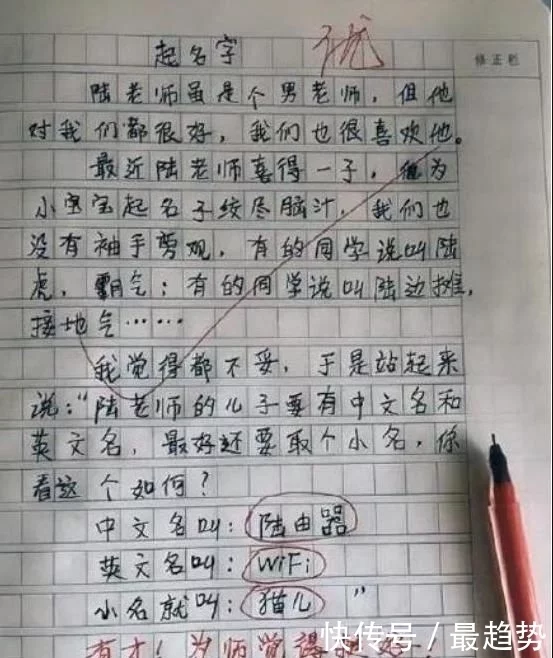 起名字
优
修正栏
陆老师虽是个男老师，但他
对我们都很好，我们也很喜欢他。
最近陆老师喜得一子，他为
小宝宝起名子绞尽脑汁，我们也
没有袖手旁观，有的同学说叫陆
虎，霸气；有的同学说叫陆边摊，
接地气……
我觉得都不妥，于是站起来
说："陆老师的儿子要有中文名和
英文名，最好还要取个小名，你
看这个如何？
中文名叫：陆由器
英文名叫：WiFi
小名就叫：猫儿"
有才！为师觉得
快传号/最趋势